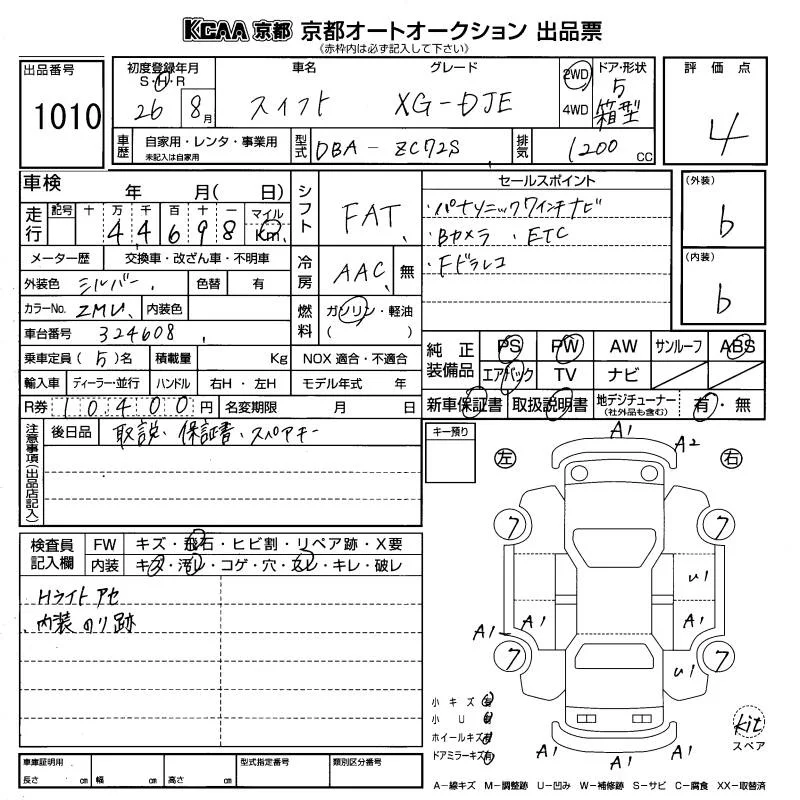 KCAA 京都 京都オートオークション 出品票
(赤枠内は必ず記入して下さい)
出品番号
1010
初度登録年月
S・H・R
26 8月
車名
スイフト
グレード
XG-DJE
2WD
4WD
ドア・形状
5
箱型
評価点
4
車歴
自家用・レンタ・事業用
未記入は自家用
型式
DBA-ZC72S
排気
1200 CC
車検 年 月( 日)
走行
記号 十 万 千 百 十 一
4 4 6 9 8
マイル
Km
メーター歴 交換車・改ざん車・不明車
外装色 シルバー 色替 有
カラーNo. ZMU 内装色
車台番号 324608
乗車定員 (5)名 積載量 Kg
輸入車 ディーラー・並行 ハンドル 右H・左H
R券 10400円 名変期限 月 日
シフト
FAT
冷房
AAC 無
燃料
ガソリン・軽油
( )
NOX 適合・不適合
モデル年式 年
セールスポイント
・パナソニックワインナビ
・Bカメラ ・ETC
・Fドラレコ
(外装)
b
(内装)
b
純正装備品
PS PW AW サンルーフ ABS
エアバック TV ナビ
新車保証書 取扱説明書 地デジチューナー
(社外品も含む)
有・無
注意事項(出品店記入)
後日品 取説・保証書・スペアキー
キー預り
検査員記入欄
FW キズ・飛石・ヒビ割・リペア跡・X要
内装 キズ・汚レ・コゲ・穴・スレ・キレ・破レ
Hライトアセ
内装のり跡
左
右
A1
A2
7
7
U1
A1
A1
A1
7
7
U1
A1
A1
小キズ有
小U有
ホイールキズ有
ドアミラーキズ有
kit
スペア
車庫証明用
長さ cm 幅 cm 高さ cm
型式指定番号
類別区分番号
A−線キズ M−調整跡 U−凹み W−補修跡 S−サビ C−腐食 XX−取替済